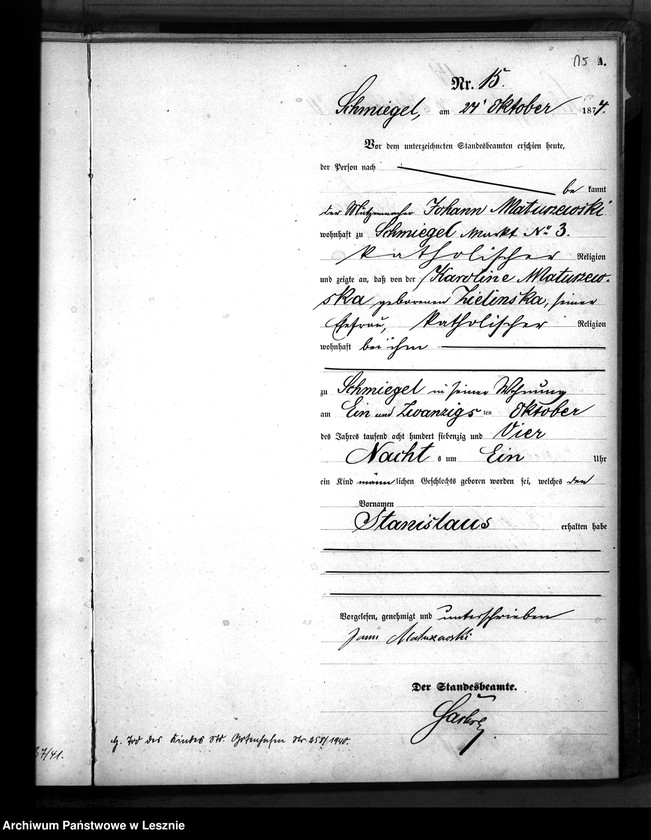 115 A.
Nr. 15.
Schmiegel, am 24 Oktober 1874.
Vor dem unterzeichneten Standesbeamten erschien heute,
der Person nach
be kannt
der Mützenmacher Johann Maturzewski
wohnhaft zu Schmiegel Markt No 3.
katholischer Religion
und zeigte an, daß von der Karoline Maturzew-
ska geborenen Zielinska, seiner
Ehefrau, katholischer Religion
wohnhaft bei ihm
zu Schmiegel in seiner Wohnung
am Ein und Zwanzigs ten Oktober
des Jahres tausend acht hundert siebenzig und Vier
Nacht s um Ein Uhr
ein Kind männ lichen Geschlechts geboren worden sei, welches den
Vornamen
Stanislaus erhalten habe
Vorgelesen, genehmigt und unterschrieben
Maturzewski
Der Standesbeamte.
Tod des Kindes Nr 257/1940.
37/41.
Archiwum Państwowe w Lesznie